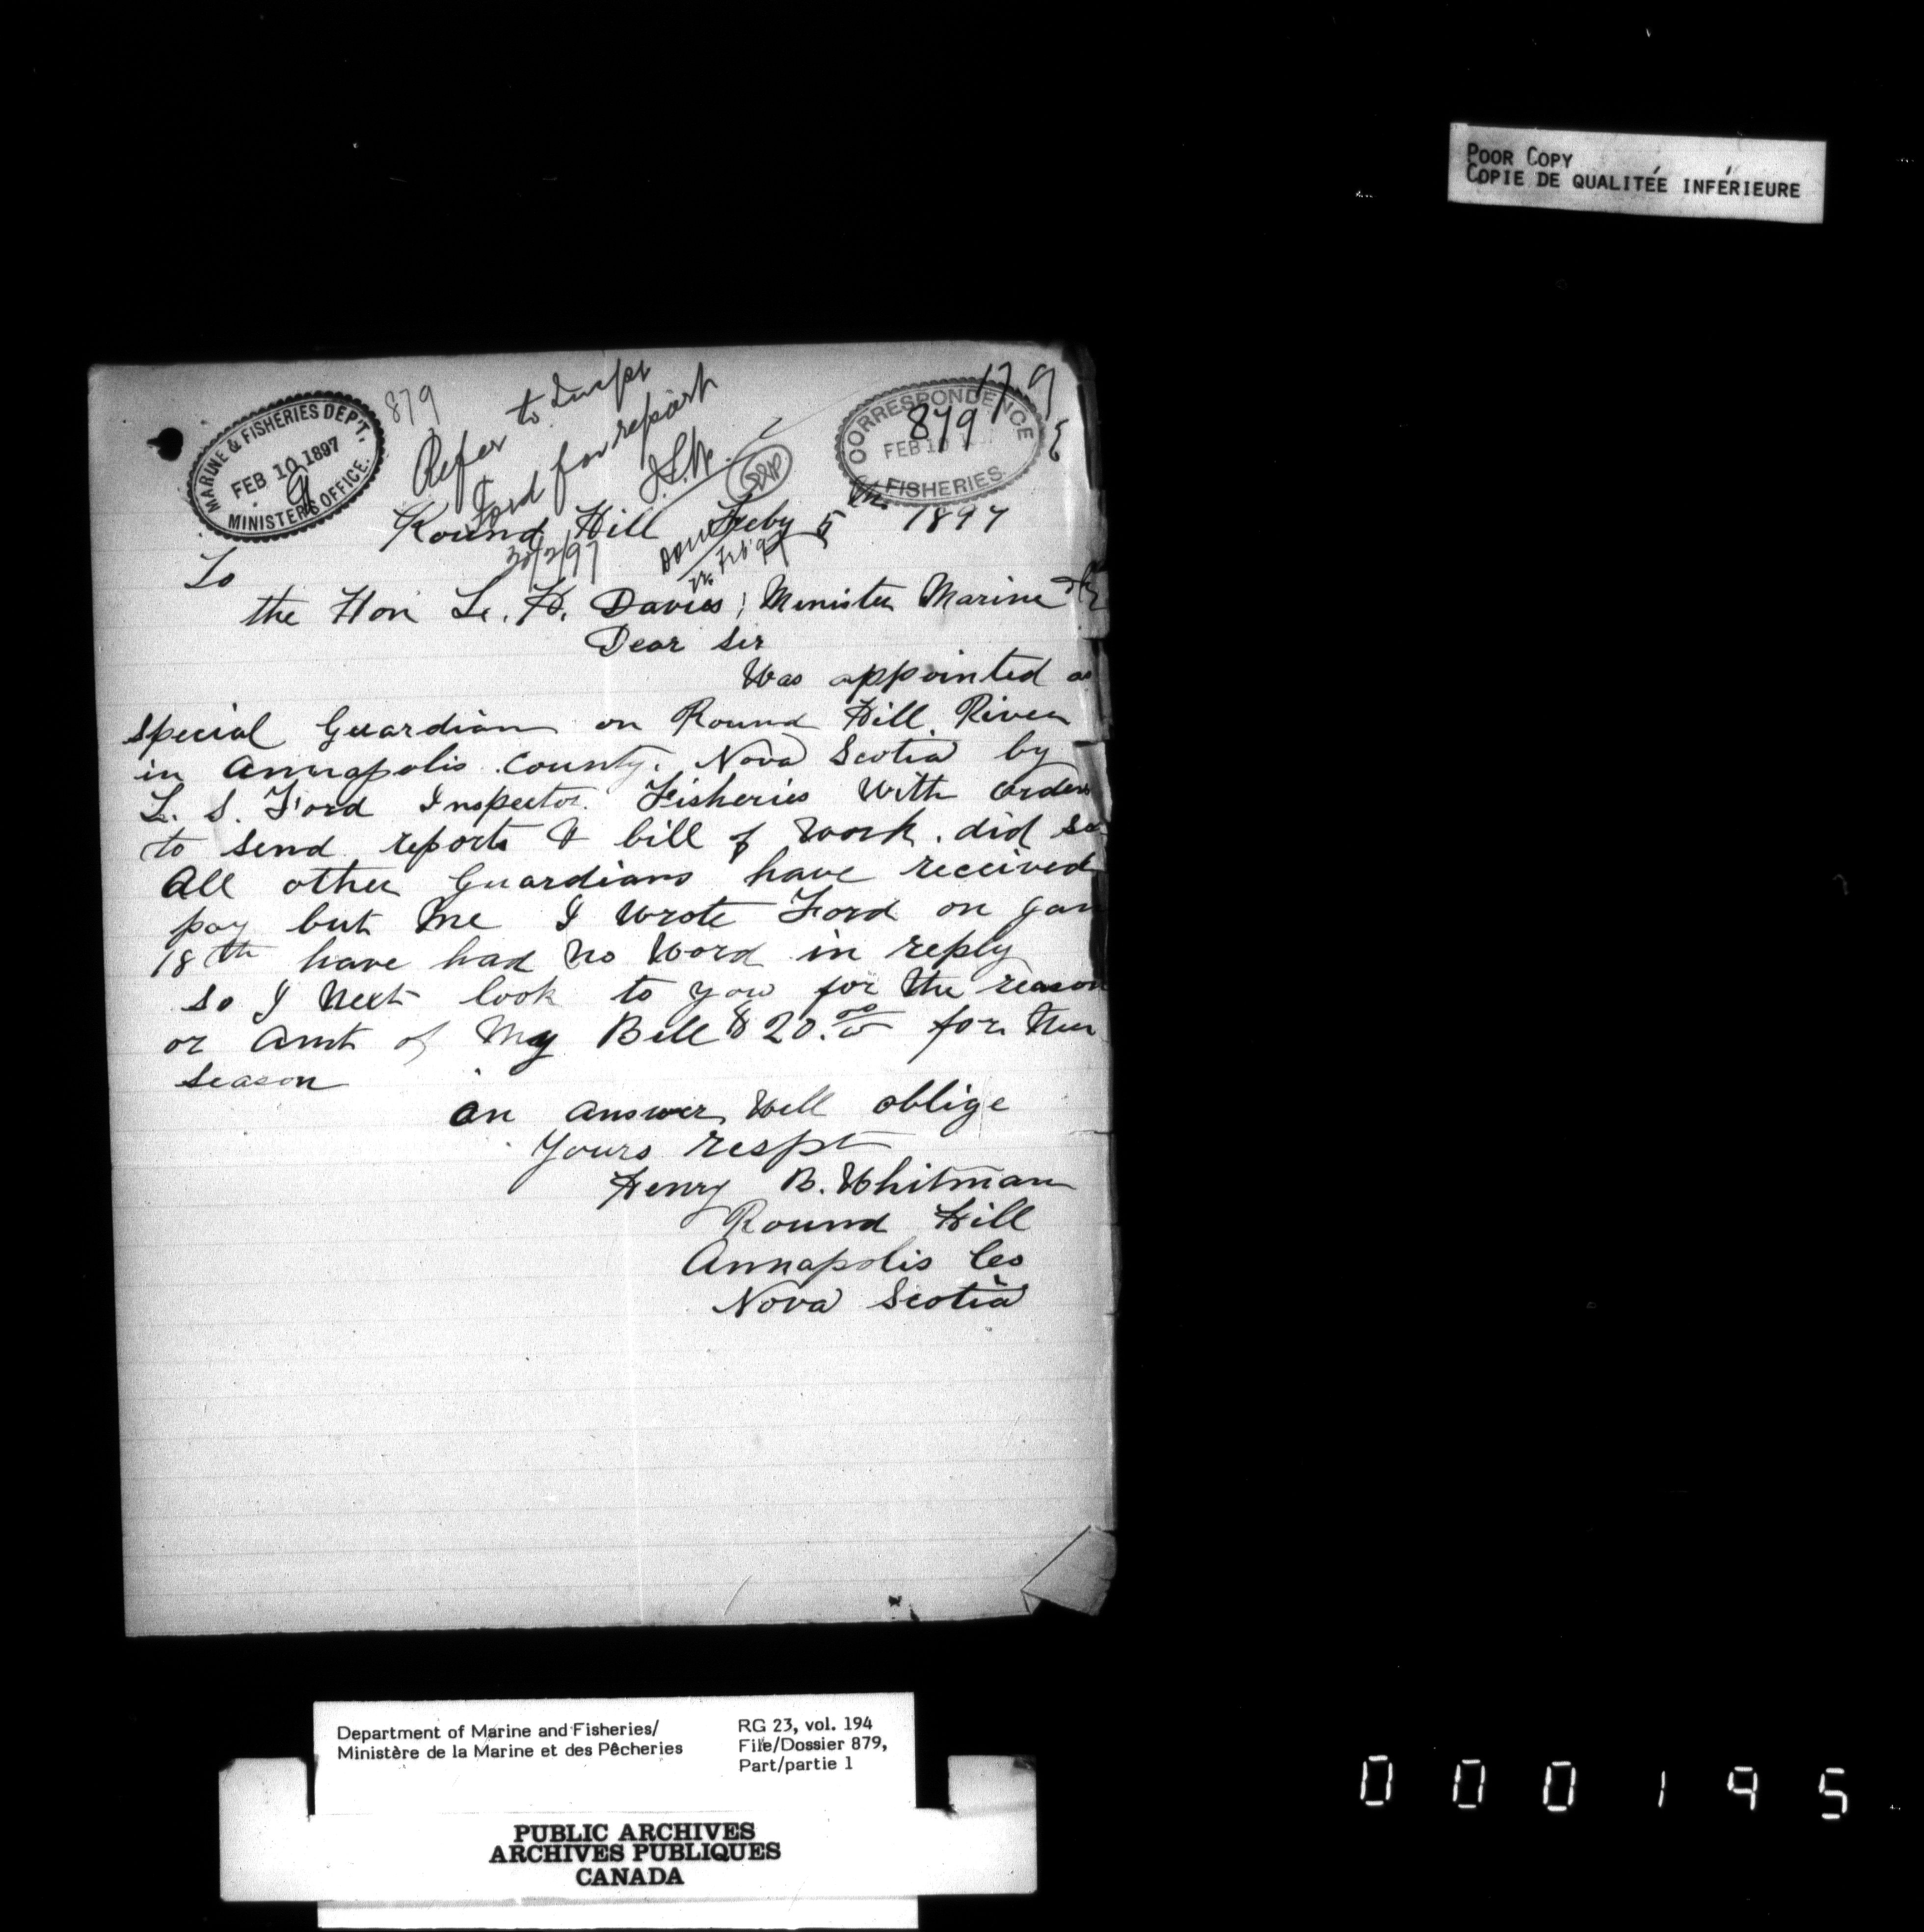 POOR COPY
COPIE DE QUALITÉE INFÉRIEURE
MARINE & FISHERIES DEP'T.
FEB 10 1897
MINISTER'S OFFICE.
879
Refer to Inspr
Ford for report
CORRESPONDENCE
879
FEB 10
FISHERIES
179
Round Hill Feby 5th 1897
To
the Hon L. H. Davies, Minister Marine
Dear Sir
Was appointed as
special Guardian on Round Hill River
in Annapolis County. Nova Scotia by
L. S. Ford Inspector Fisheries With orders
to send reports & bill of Work. did so
All other Guardians have received
pay but Me I Wrote Ford on Jan
18th have had No Word in reply
so I Next look to you for the reason
or Amt of My Bill $20.00 for the
season
An Answer Will oblige
Yours respt
Henry B. Whitman
Round Hill
Annapolis Co
Nova Scotia
Department of Marine and Fisheries/
Ministère de la Marine et des Pêcheries
RG 23, vol. 194
File/Dossier 879,
Part/partie 1
PUBLIC ARCHIVES
ARCHIVES PUBLIQUES
CANADA
000195